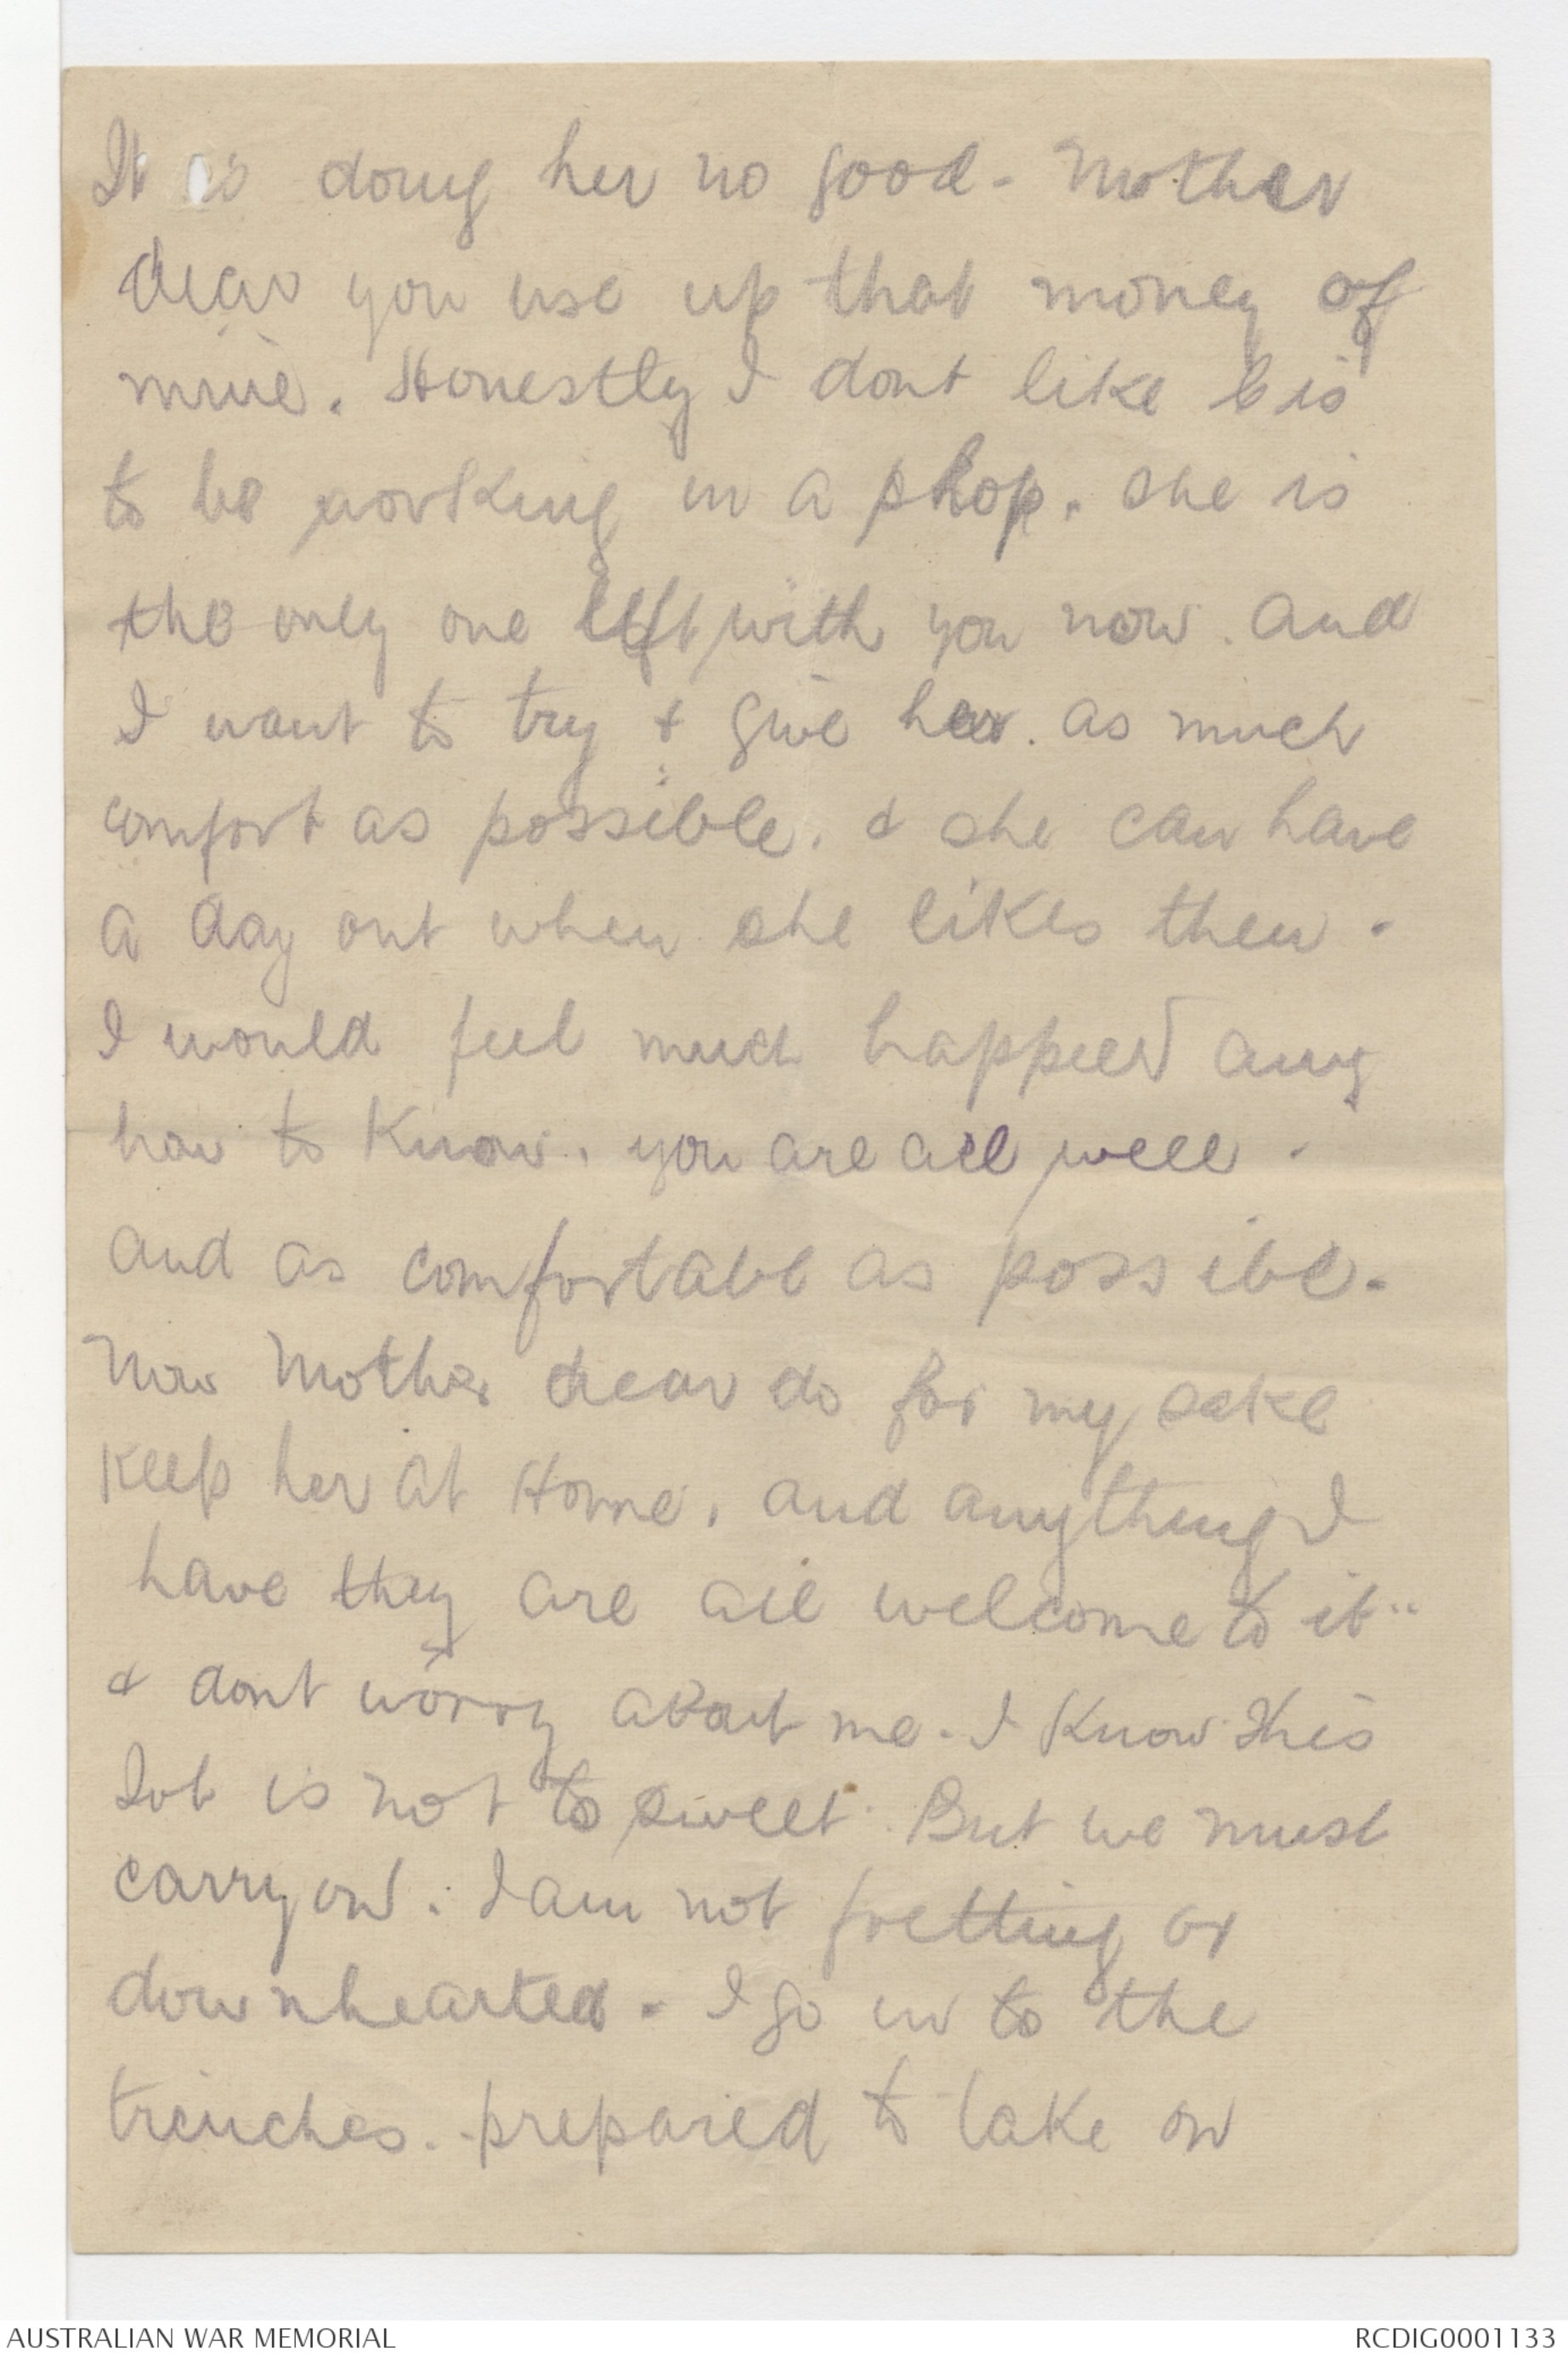 It is doing her no good. Mother
dear you use up that money of
mine. Honestly I dont like Cis
to be working in a shop. She is
the only one left with you now. And
I want to try & give her. as much
comfort as possible. & she can have
a day out when she likes then.
I would feel much happier any
how to know. you are all well.
and as comfortable as possible.
Now Mother dear do for my sake
keep her at Home, and anything I
have they are all welcome to it..
& dont worry about me. I know this
Job is not to sweet. But we must
carry on. I am not fretting or
downhearted. I go in to the
trenches. prepared to take on
AUSTRALIAN WAR MEMORIAL
RCDIG0001133